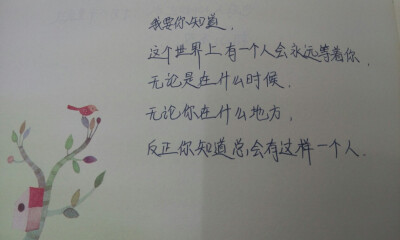 我要你知道，
这个世界上有一个人会永远等着你，
无论是在什么时候，
无论你在什么地方，
反正你知道总会有这样一个人.